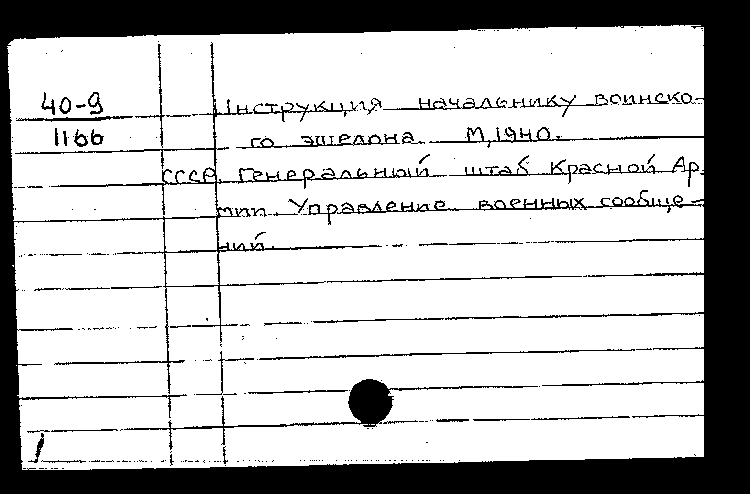 40-9
1166
Инструкция начальнику воинско-
го эшелона. М, 1940.
СССР. Генеральный штаб Красной Ар-
мии. Управление военных сообще-
ний.